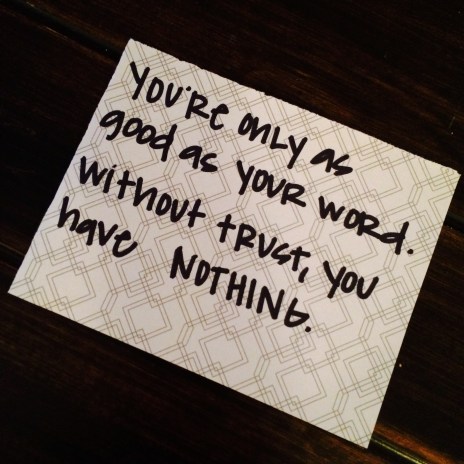 YOU'RE ONLY as
good as YOUR WORD.
Without tRUSt, YOU
have NOTHING.